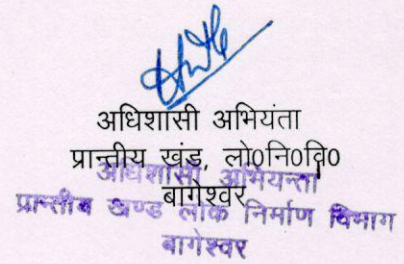 अधिशासी अभियंता
प्रान्तीय खंड, लो०नि०वि०
बागेश्वर
अधिशासी अभियन्ता
प्रान्तीय खण्ड लोक निर्माण विभाग
बागेश्वर